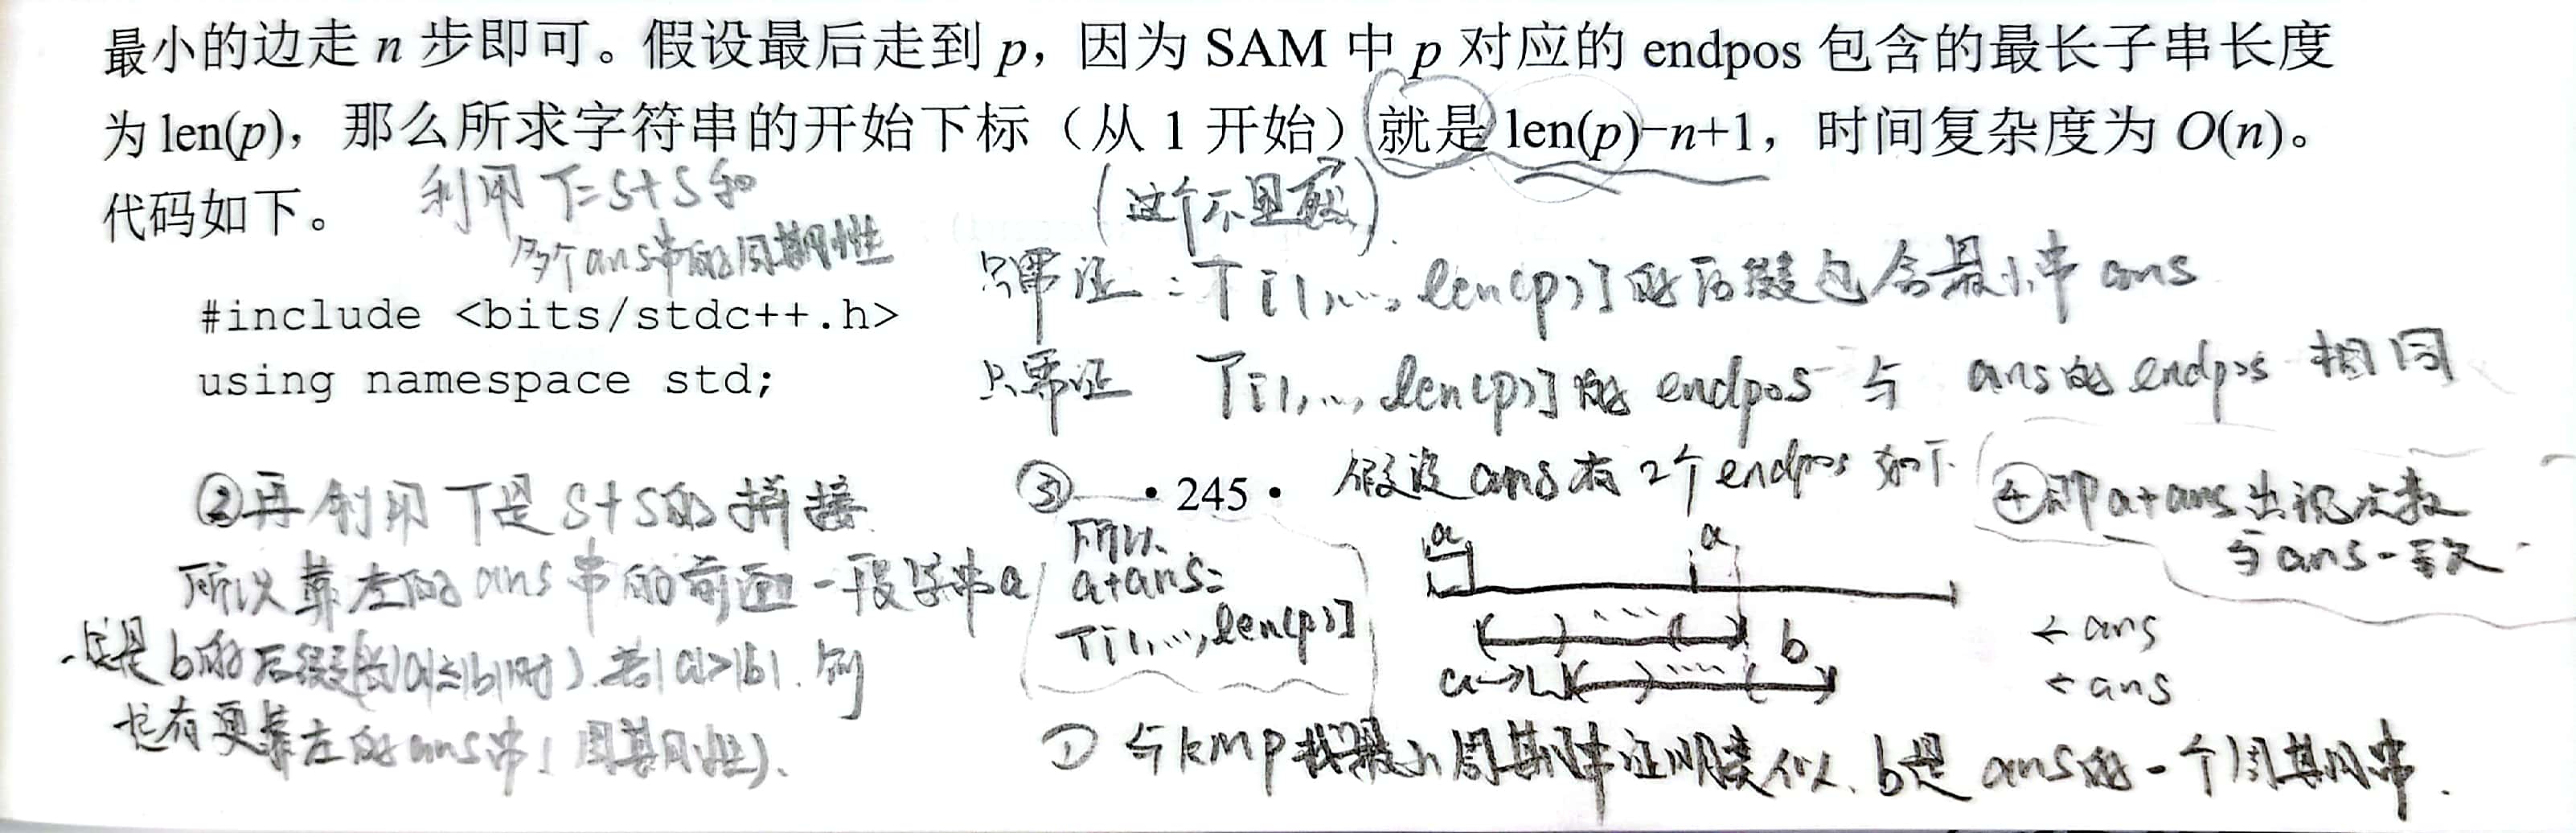 最小的边走 n 步即可。假设最后走到 p，因为 SAM 中 p 对应的 endpos 包含的最长子串长度
为 len(p)，那么所求字符串的开始下标（从 1 开始）就是 len(p)−n+1，时间复杂度为 O(n)。
代码如下。
利用 T=S+S 和
多个ans串的周期性
(这个不显然)
只需证：T[1,…,len(p)]的后缀包含最小串 ans
只需证 T[1,…,len(p)]的 endpos 与 ans的 endpos 相同
#include <bits/stdc++.h>
using namespace std;
假设 ans有 2个 endpos 如下
a
a
b
a→
←ans
←ans
① 与kmp找最小周期串证明类似. b是 ans的一个周期串.
②再利用 T是 S+S的拼接
所以靠左的ans串的前面一段字串a
一定是b的后缀(当|a|≤|b|时).若|a|>|b|.则
也有更靠左的ans串(周期性).
③
所以
a+ans=
T[1,…,len(p)]
④即a+ans出现次数
与ans一致
• 245 •